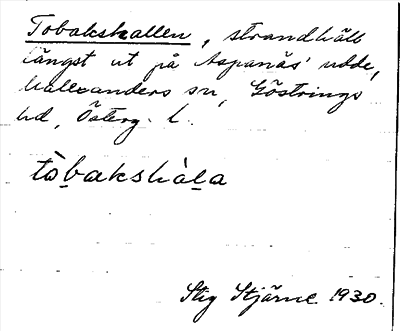 Tobakshallen, strandhäll
längst ut på Aspanäs' udde,
Malexanders sn, Göstrings
hd, Österg. l.
tòbakshàla
Stig Stjärne. 1930.